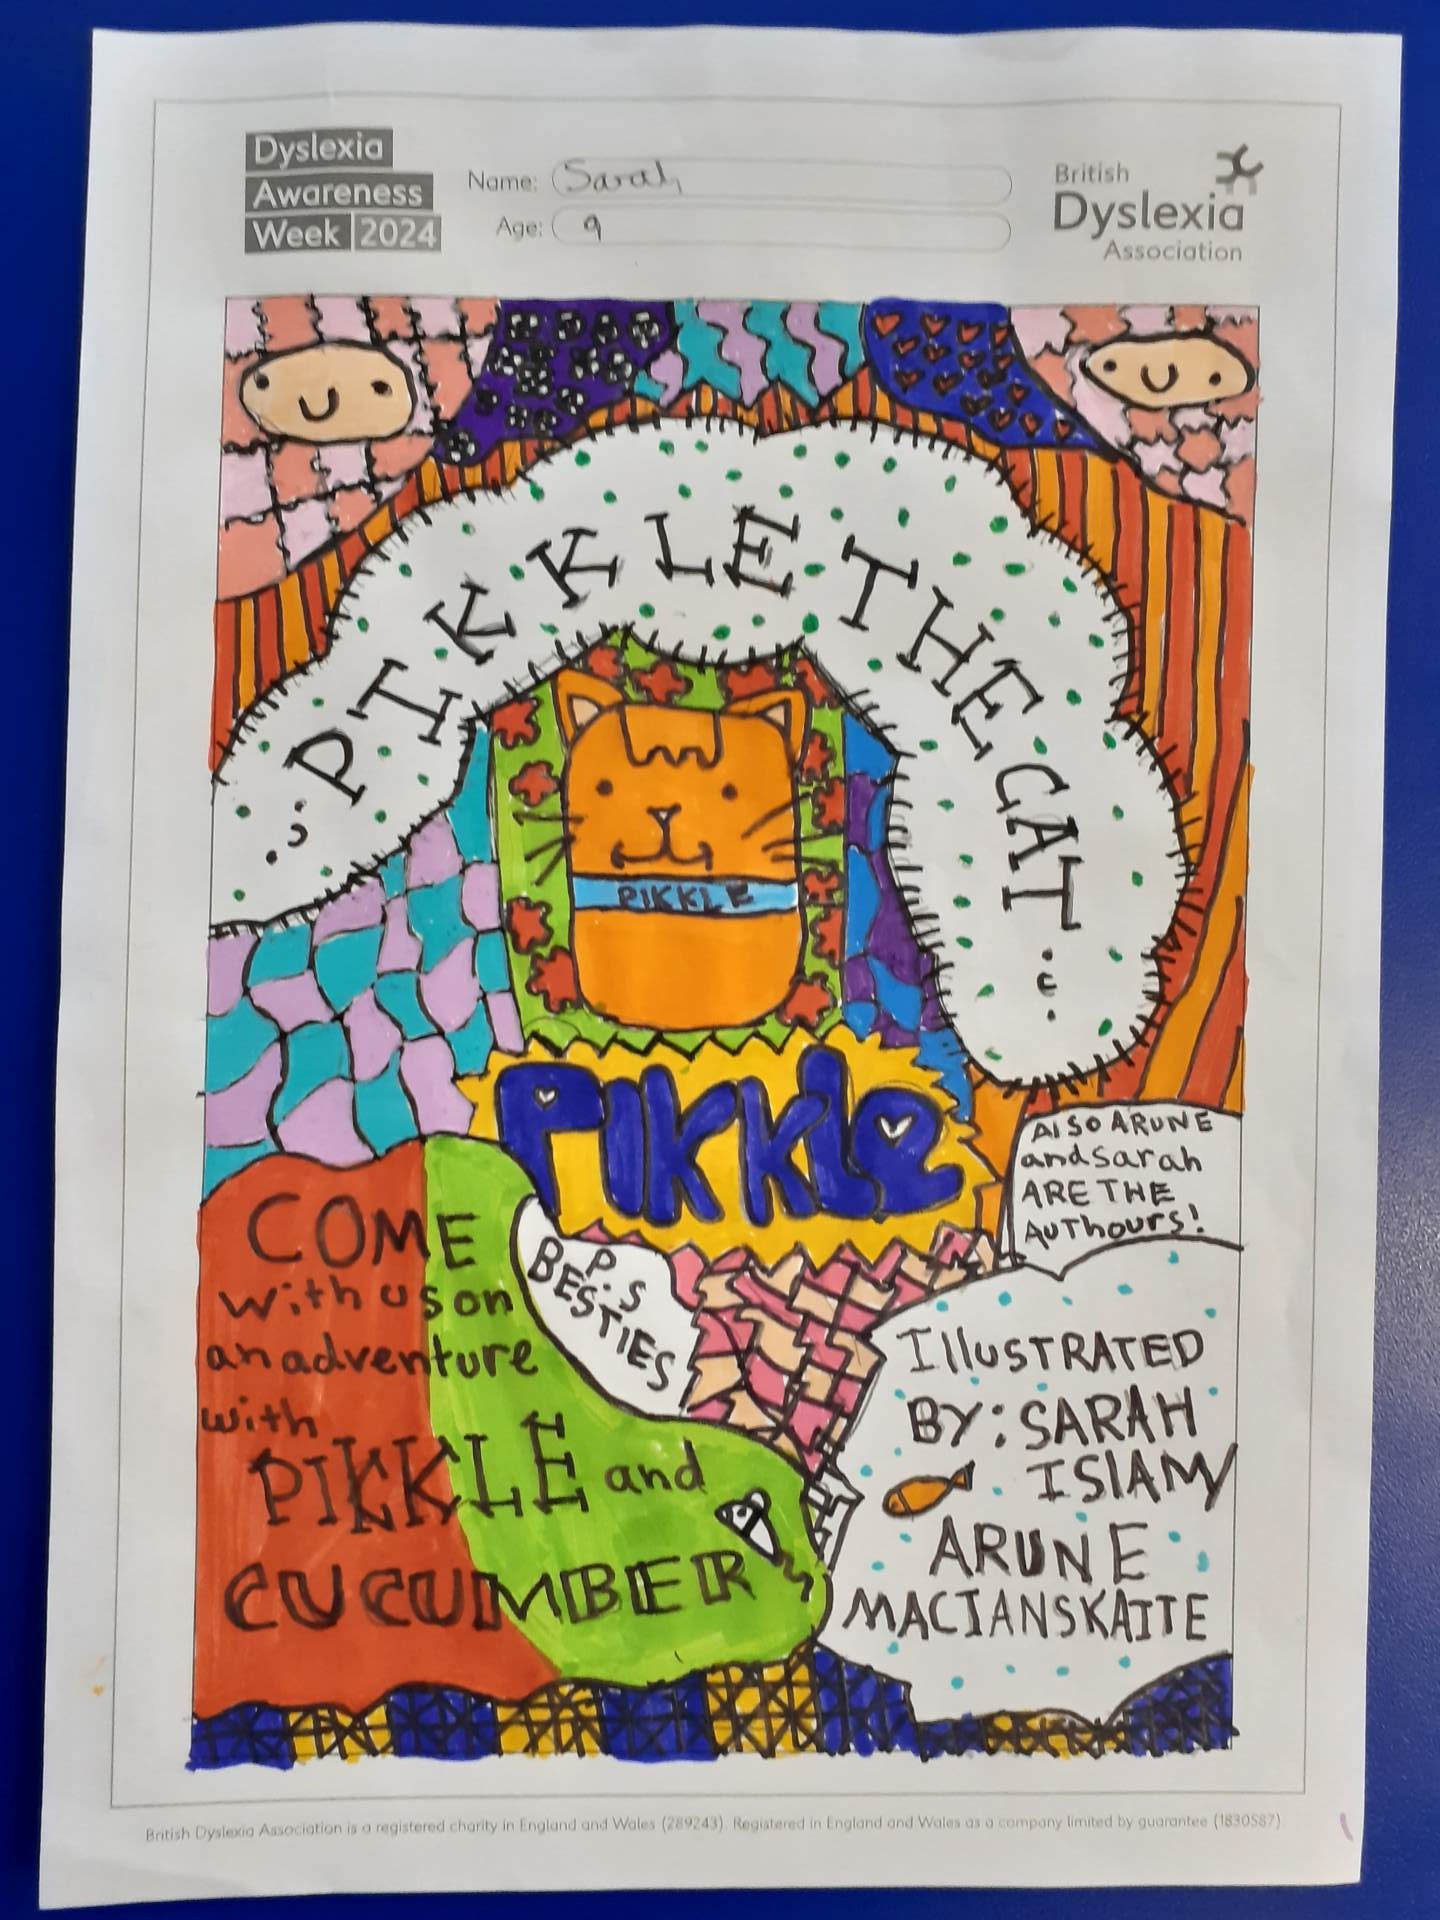 Dyslexia
Awareness
Week 2024
Name: Sarah
Age: 9
British
Dyslexia
Association
PIKKLE THE CAT
PIKKLE
PIKKle
AlSO ARUNE
and Sarah
ARE THE
AUTHOURS!
COME
with us on
an adventure
with
PIKKLE and
CUCUMBER
P.S
BESTIES
IllUSTRATED
BY: SARAH
ISlAM
ARUNE
MACIANSKAITE
British Dyslexia Association is a registered charity in England and Wales (289243). Registered in England and Wales as a company limited by guarantee (1830587)